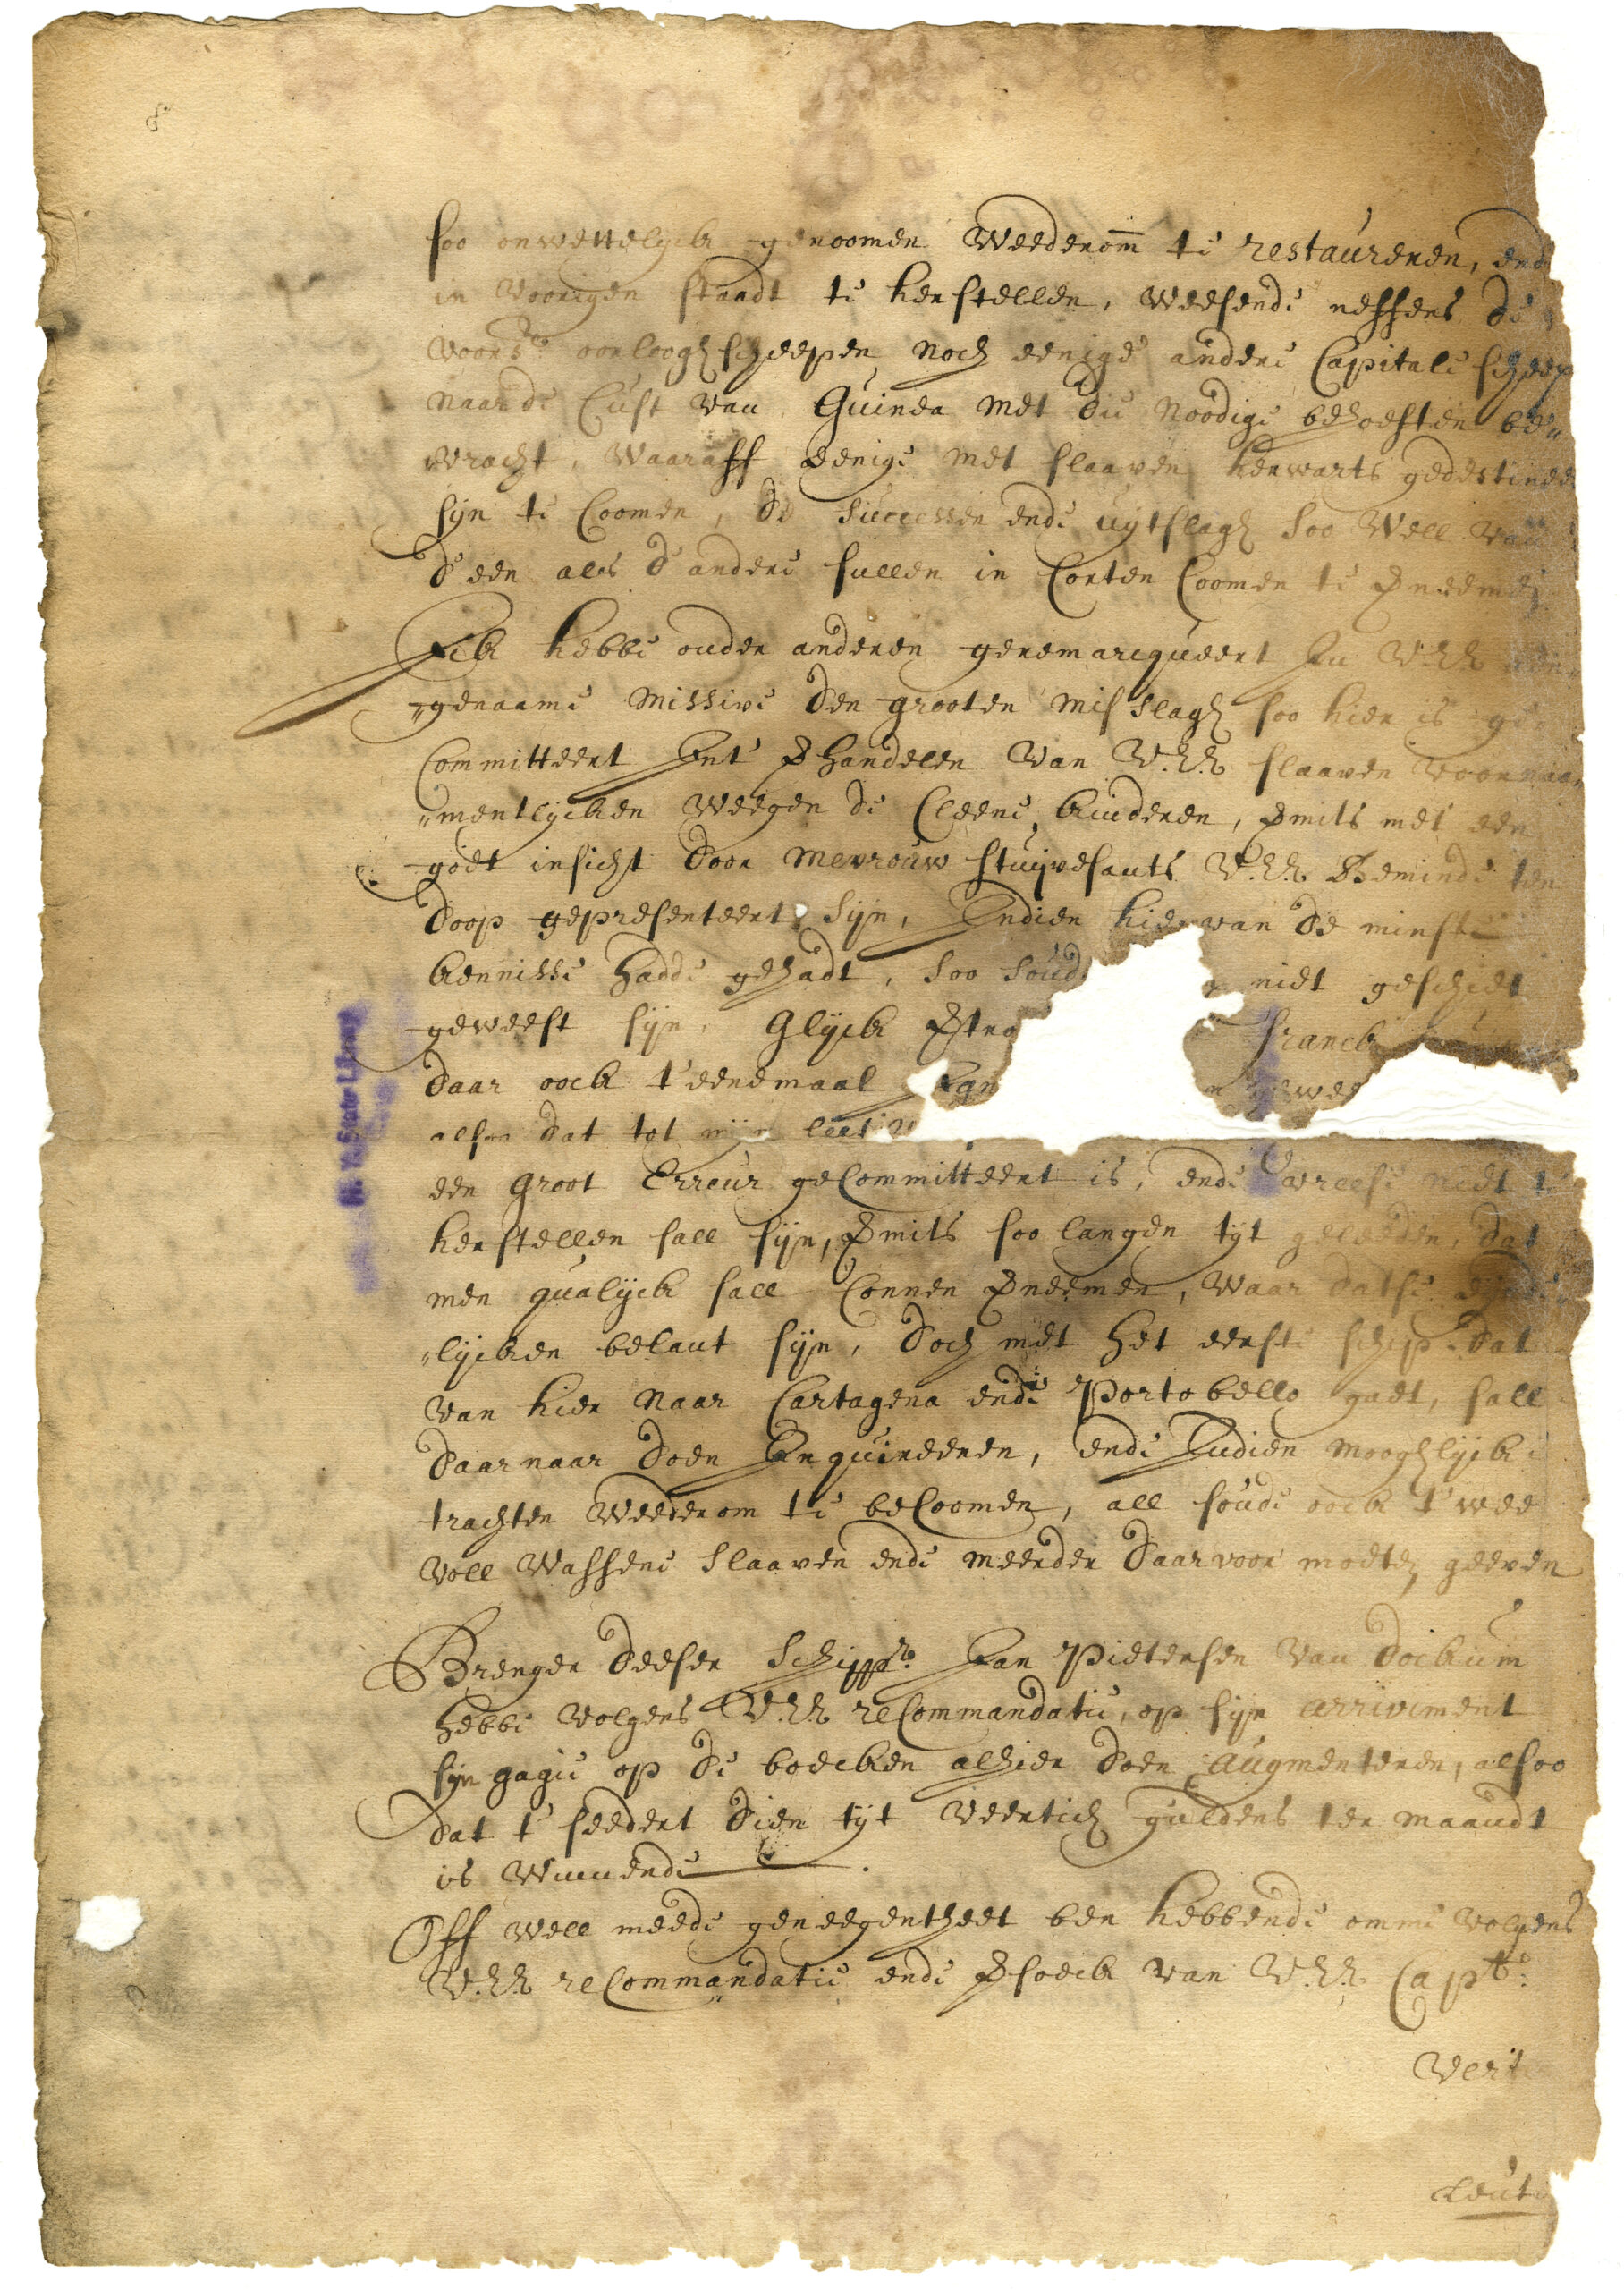 soo onwettelyck genoomen weederom̄ te restaureren, end
in voorigen staadt te herstellen, weesende neffens de
voors: oorloogscheepen noch eenige andere Capitale scheep
naar de Cust van Guinea met die noodige behoeften be„
vracht, waaraff eenige met slaaven herwarts gedestinee
sijn te Coomen, de successen ende uytslagh soo well van
d'een als d'andere sullen in Corten Coomen te verneemen
Ick hebbe onder anderen geremarcqueert In U.E.E. aen
„genaame missive den grooten misslagh soo hier is ge
Committeert Int verhandelen van U.E.E. slaaven voornaa„
„mentlycken weegen de Cleene kinderen, vermits met een
goet insicht door mevrouw stuijvesants U.E.E. Beminde ten
doop gepresenteert sijn, Indien hiervan de minste
kennisse hadde gehadt, soo soud niet geschiet
geweest sijn, Glijck vertro franck
daar oock t'eenemaal Ign gewee
alsoo dat tot mijn leet
een groot Erreur geCommitteert is, ende vreese niet t
herstellen sall sijn, vermits soo langen tijt geleeden, dat
men qualijck sall Connen verneemen, waar datse
„lijcken belant sijn, doch met het eerste schip dat
van hier naar Cartagena ende Portobello gaet, sall
daarnaar doen Inquireeren, ende Indien mooghlijck
trachten weederom te beCoomen, all soude oock t'wee
voll wassene slaaven ende meerder daarvoor moeten geeven
Brenger deeser Schippr: Jan Pietersen van dockum
hebbe volgens U.E.E. reCommandatie, op sijn arrivement
sijn gagie op de boecken alhier doen augmenteren, alsoo
dat t' seedert dien tijt veertich guldens ter maandt
is winnende.
Off well meede geneegentheet ben hebbende omme volgens
U.E.E. reCommandatie ende versoeck van U.E.E. Capt:
Leut
N. Y. State Library